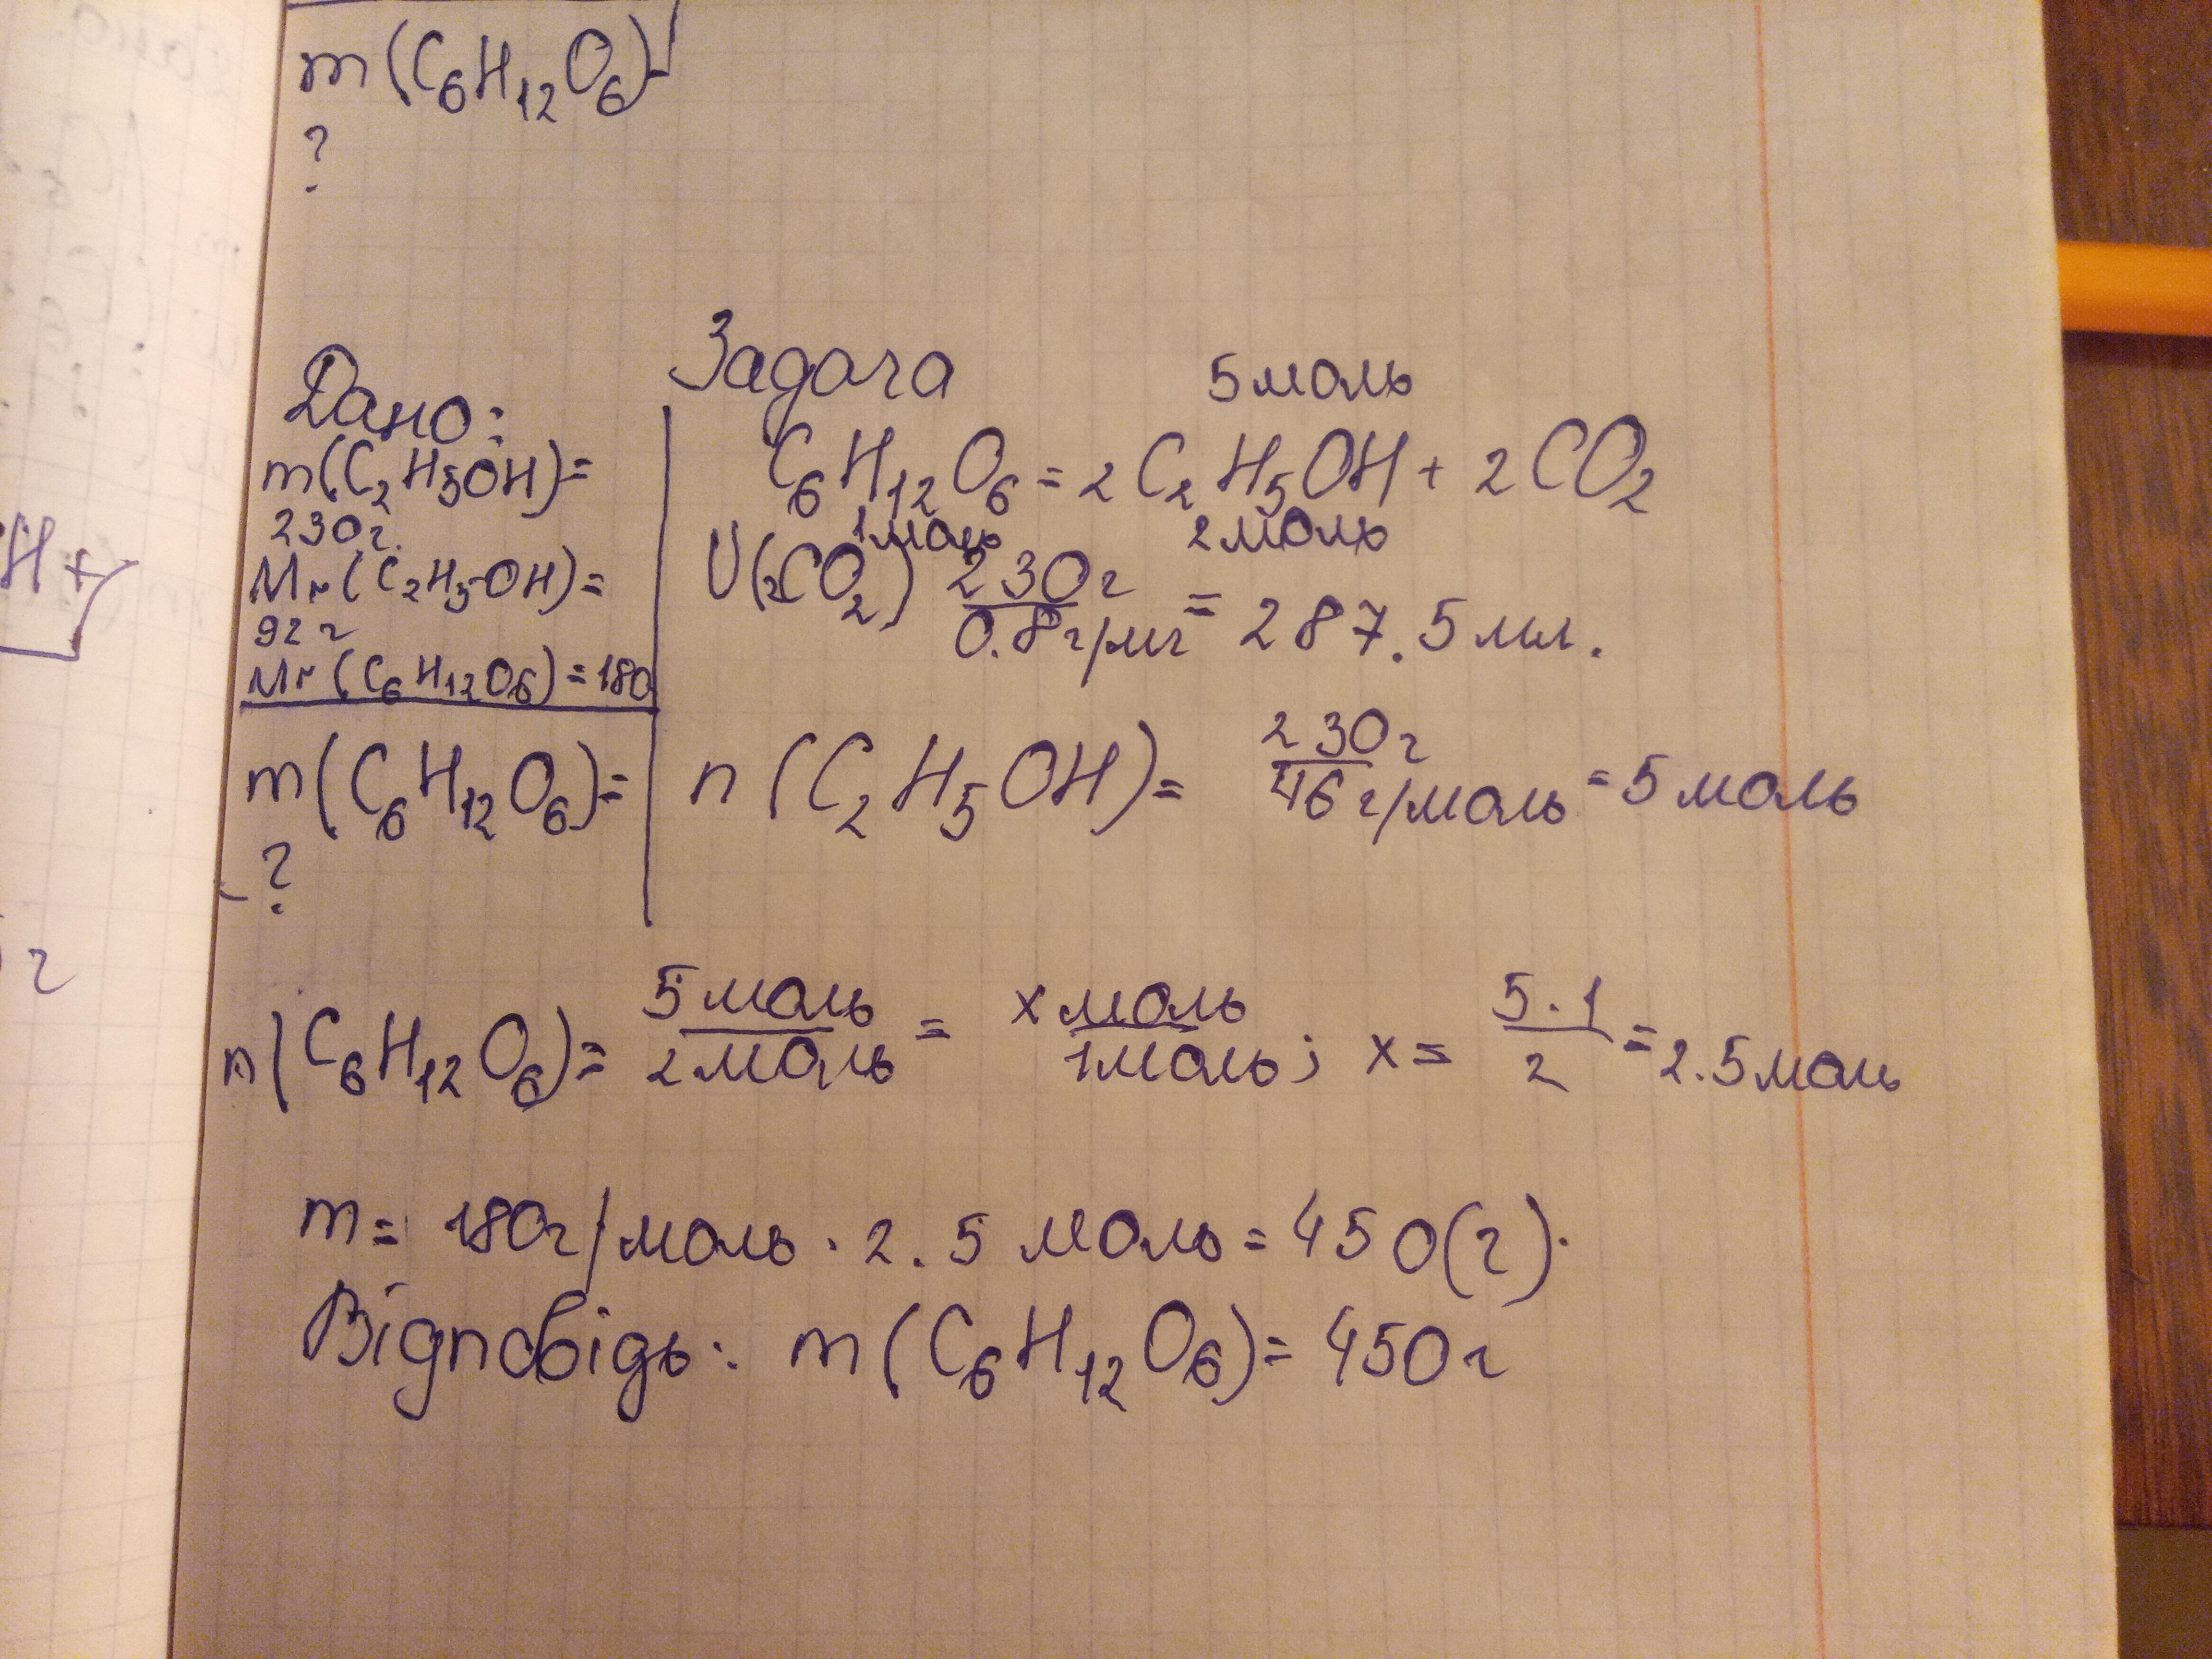 m(C₆H₁₂O₆)-
?
Задача
Дано:
m(C₂H₅OH)=
230г.
Mr(C₂H₅OH)=
92г
Mr(C₆H₁₂O₆)=180
m(C₆H₁₂O₆)=
-?
5моль
C₆H₁₂O₆ = 2C₂H₅OH + 2CO₂
1моль 2моль
V(2CO₂) 230г/0.8г/мг = 287.5мл.
n(C₂H₅OH)= 230г/46г/моль = 5моль
n(C₆H₁₂O₆)= 5моль/2моль = xмоль/1моль; x= 5·1/2 = 2.5моль
m= 180г/моль · 2.5 моль = 450(г).
Відповідь: m(C₆H₁₂O₆)= 450г
H+
г